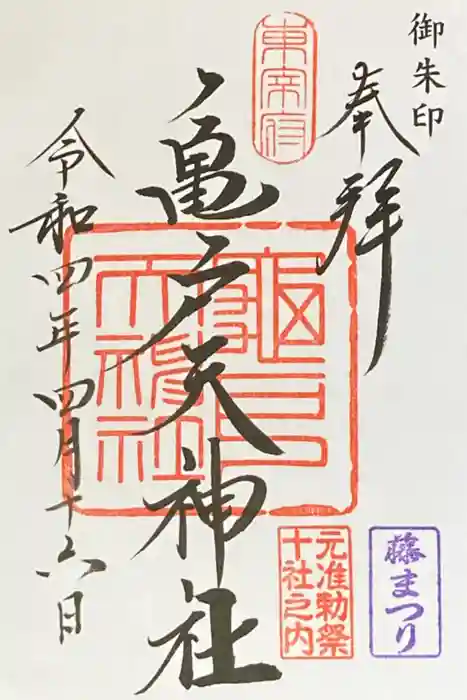 御朱印
奉拝
東宰府
亀戸天神社
亀戸天神社
令和四年四月十六日
元准勅祭
十社之内
藤まつり